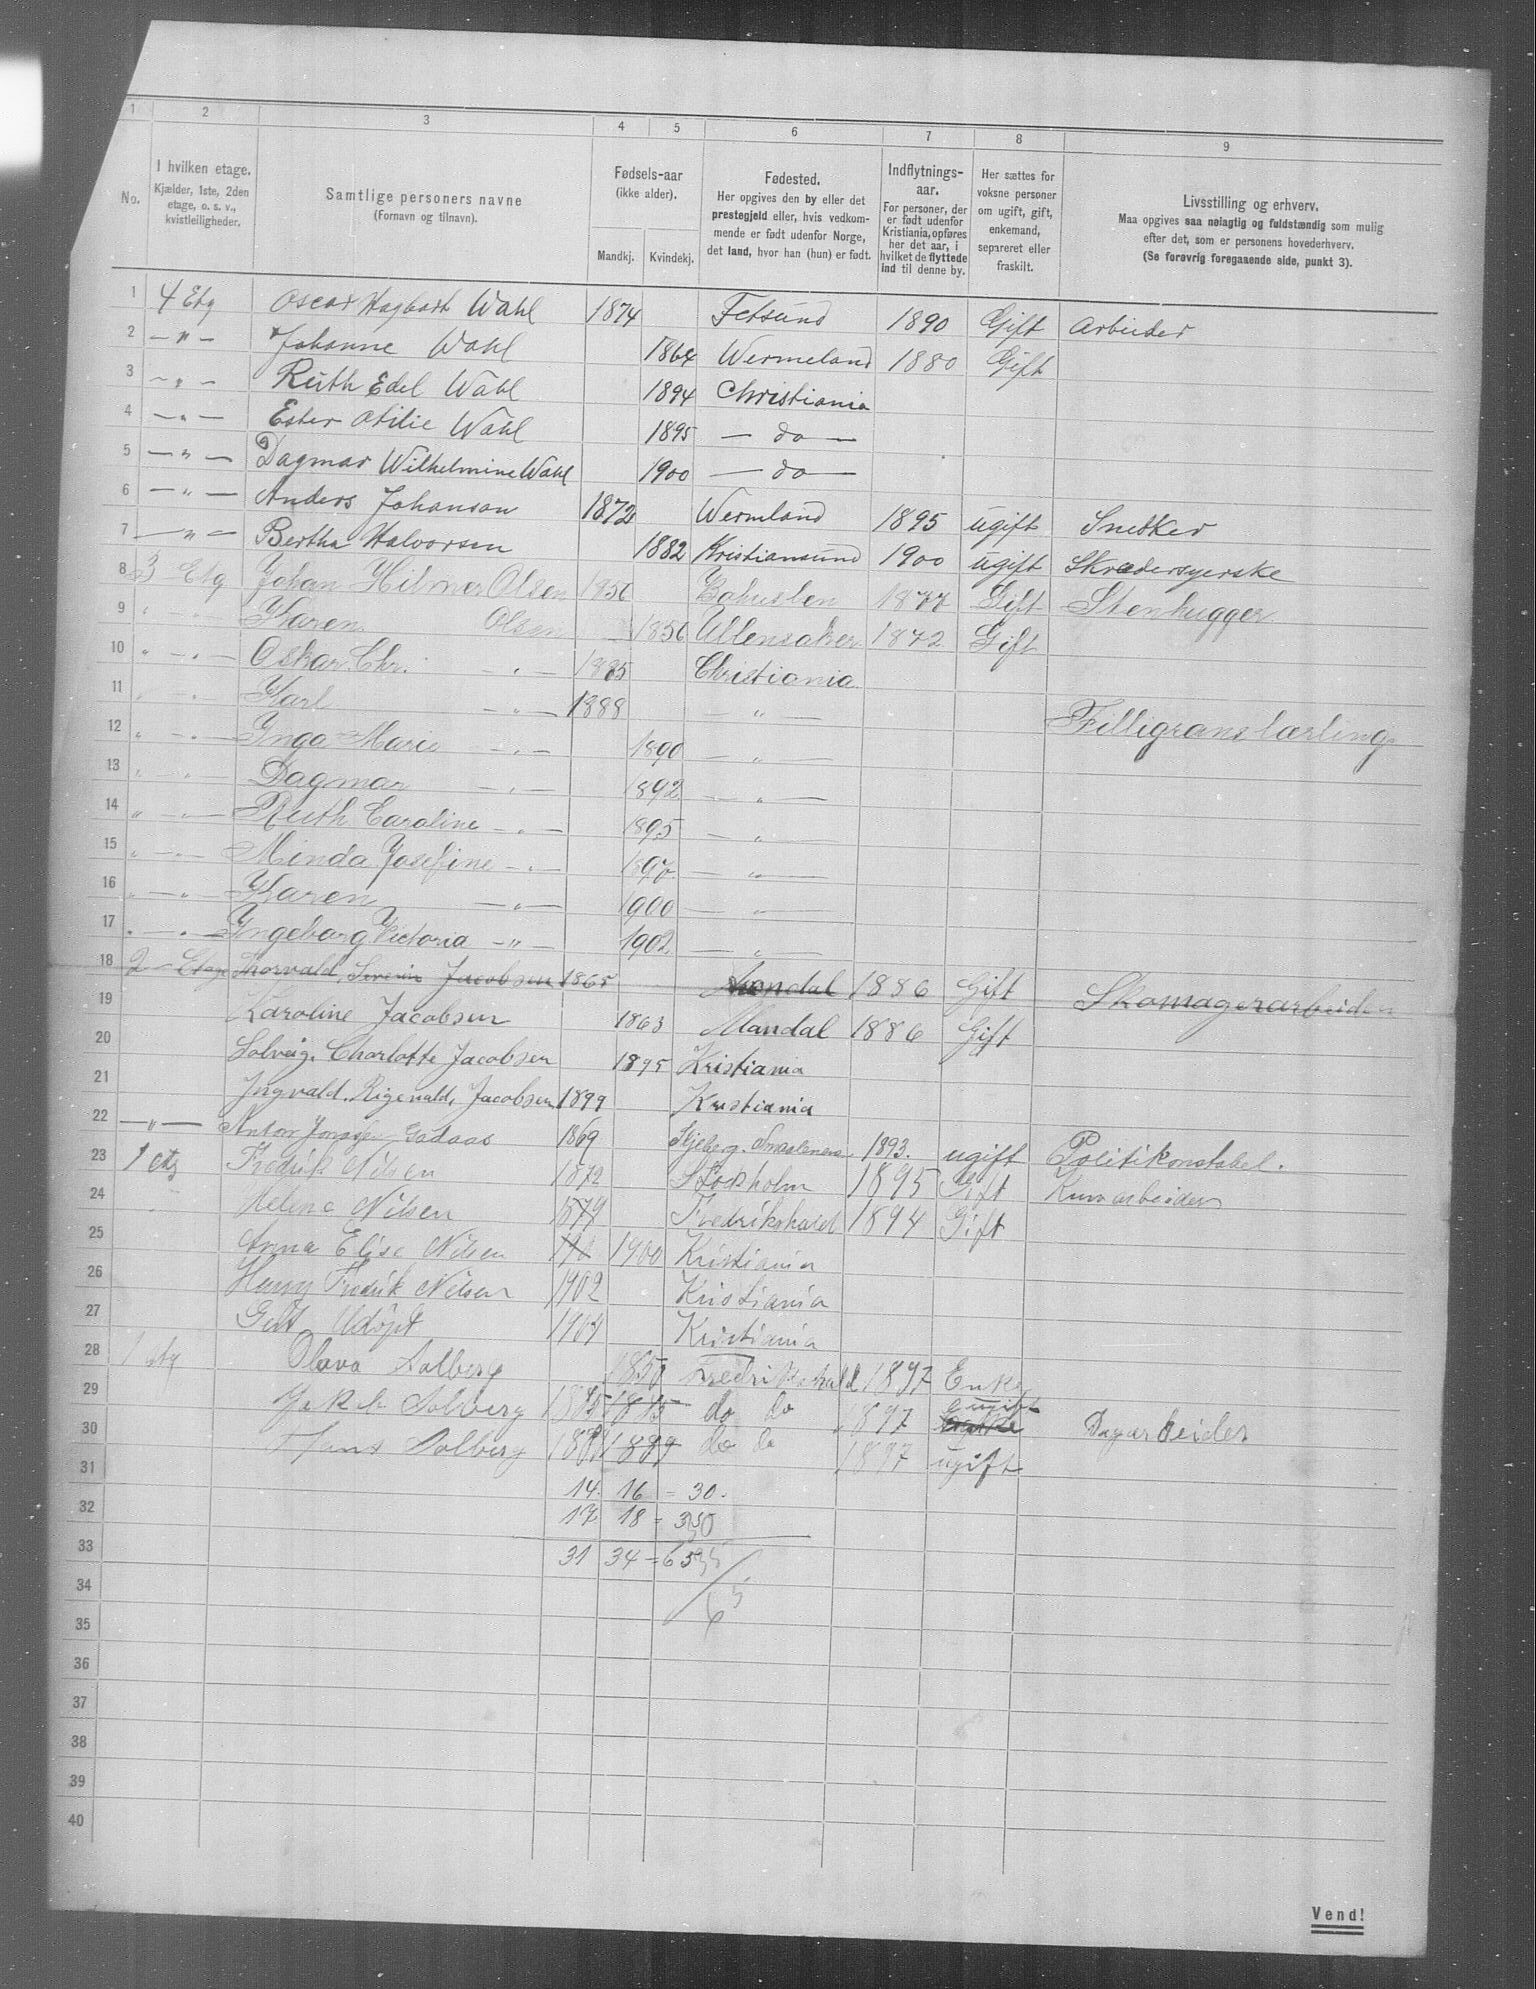 1 2 3 4 5 6 7 8 9
No.
I hvilken etage.
Kjælder, 1ste, 2den
etage, o. s. v.,
kvistleiligheder.
Samtlige personers navne
(Fornavn og tilnavn).
Fødsels-aar
(ikke alder).
Mandkj. Kvindekj.
Fødested.
Her opgives den by eller det
prestegjeld eller, hvis vedkom-
mende er født udenfor Norge,
det land, hvor han (hun) er født.
Indflytnings-
aar.
For personer, der
er født udenfor
Kristiania, opføres
her det aar, i
hvilket de flyttede
ind til denne by.
Her sættes for
voksne personer
om ugift, gift,
enkemand,
separeret eller
fraskilt.
Livsstilling og erhverv.
Maa opgives saa nøiagtig og fuldstændig som mulig
efter det, som er personens hovederhverv.
(Se forøvrig foregaaende side, punkt 3).
1 4 Etg Oscar Hagbart Wahl 1874 Fetsund 1890 Gift Arbeider
2 — " — Johanne Wahl 1864 Wermeland 1880 Gift
3 — " — Ruth Edel Wahl 1894 Christiania
4 — " — Ester Otilie Wahl 1895 — do —
5 — " — Dagmar Wilhelmine Wahl 1900 — do —
6 — " — Anders Johanson 1872 Wermland 1895 ugift Snedker
7 — " — Bertha Halvorsen 1882 Kristiansund 1900 ugift Skrædersyerske
8 3 Etg Johan Hilmer Olsen 1850 Bohuslen 1877 Gift Stenhugger
9 " - " - Karen Olsen 1856 Ullensaker 1872 Gift
10 " - " - Oskar Chr. — " — 1885 Christiania
11 " " Karl — " — 1888 — " — Filligranslærling
12 " - " - Inga Marie — " — 1890 — " —
13 " - " - Dagmar — " — 1892 — " —
14 " - " - Ruth Caroline — " — 1895 — " —
15 " - " - Minda Josefine — " — 1897 — " —
16 " - " - Karen — " — 1900 — " —
17 " - " - Ingeborg Victoria — " — 1902 — " —
18 2 Etage Thorvald, Severin Jacobsen 1865 Mandal 1886 Gift Skomagerarbeider
19 Karoline Jacobsen 1863 Mandal 1886 Gift
20 Solveig. Charlotte Jacobsen 1895 Kristiania
21 Ingvald. Rigenald, Jacobsen 1899 Kristiania
22 — " — Anton Gadaas 1869 Skjeberg. Smaalenene 1893. ugift Politikonstabel.
23 1 etg Fredrik Nilsen 1872 Stockholm 1895 Gift
24 Helene Nilsen 1879 Fredrikshald 1894 Gift
25 Anna Elise Nilsen 190 1900 Kristiania
26 Harry Fredrik Nilsen 1902 Kristiania
27 Gut Udöpt 1904 Kristiania
28 1 etg Olava Solberg 1850 Fredrikshald 1897 Enke
29 Jakob Solberg 1885 1885 do do 1897 ugift Dagarbeider
30 Hans Solberg 1889 1889 do do 1897 ugift
31 14. 16 = 30.
32 17 18 = 35
33 31 34 = 65
34 65
35
36
37
38
39
40
Vend!